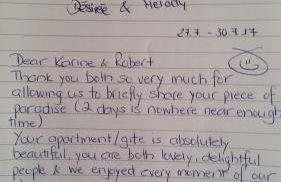 Désirée & Melody
27.7 - 30.7.17
Dear Karine & Robert
Thank you both so very much for
allowing us to briefly share your piece of
paradise (2 days is nowhere near enough
time)
Your apartment/gite is absolutely
beautiful, you are both lovely, delightful
people & we enjoyed every moment of our